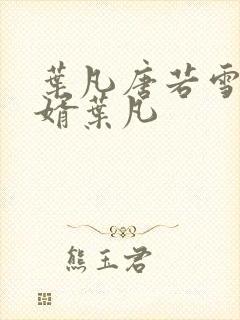 葉凡唐若雪
婿葉凡
熊玉君